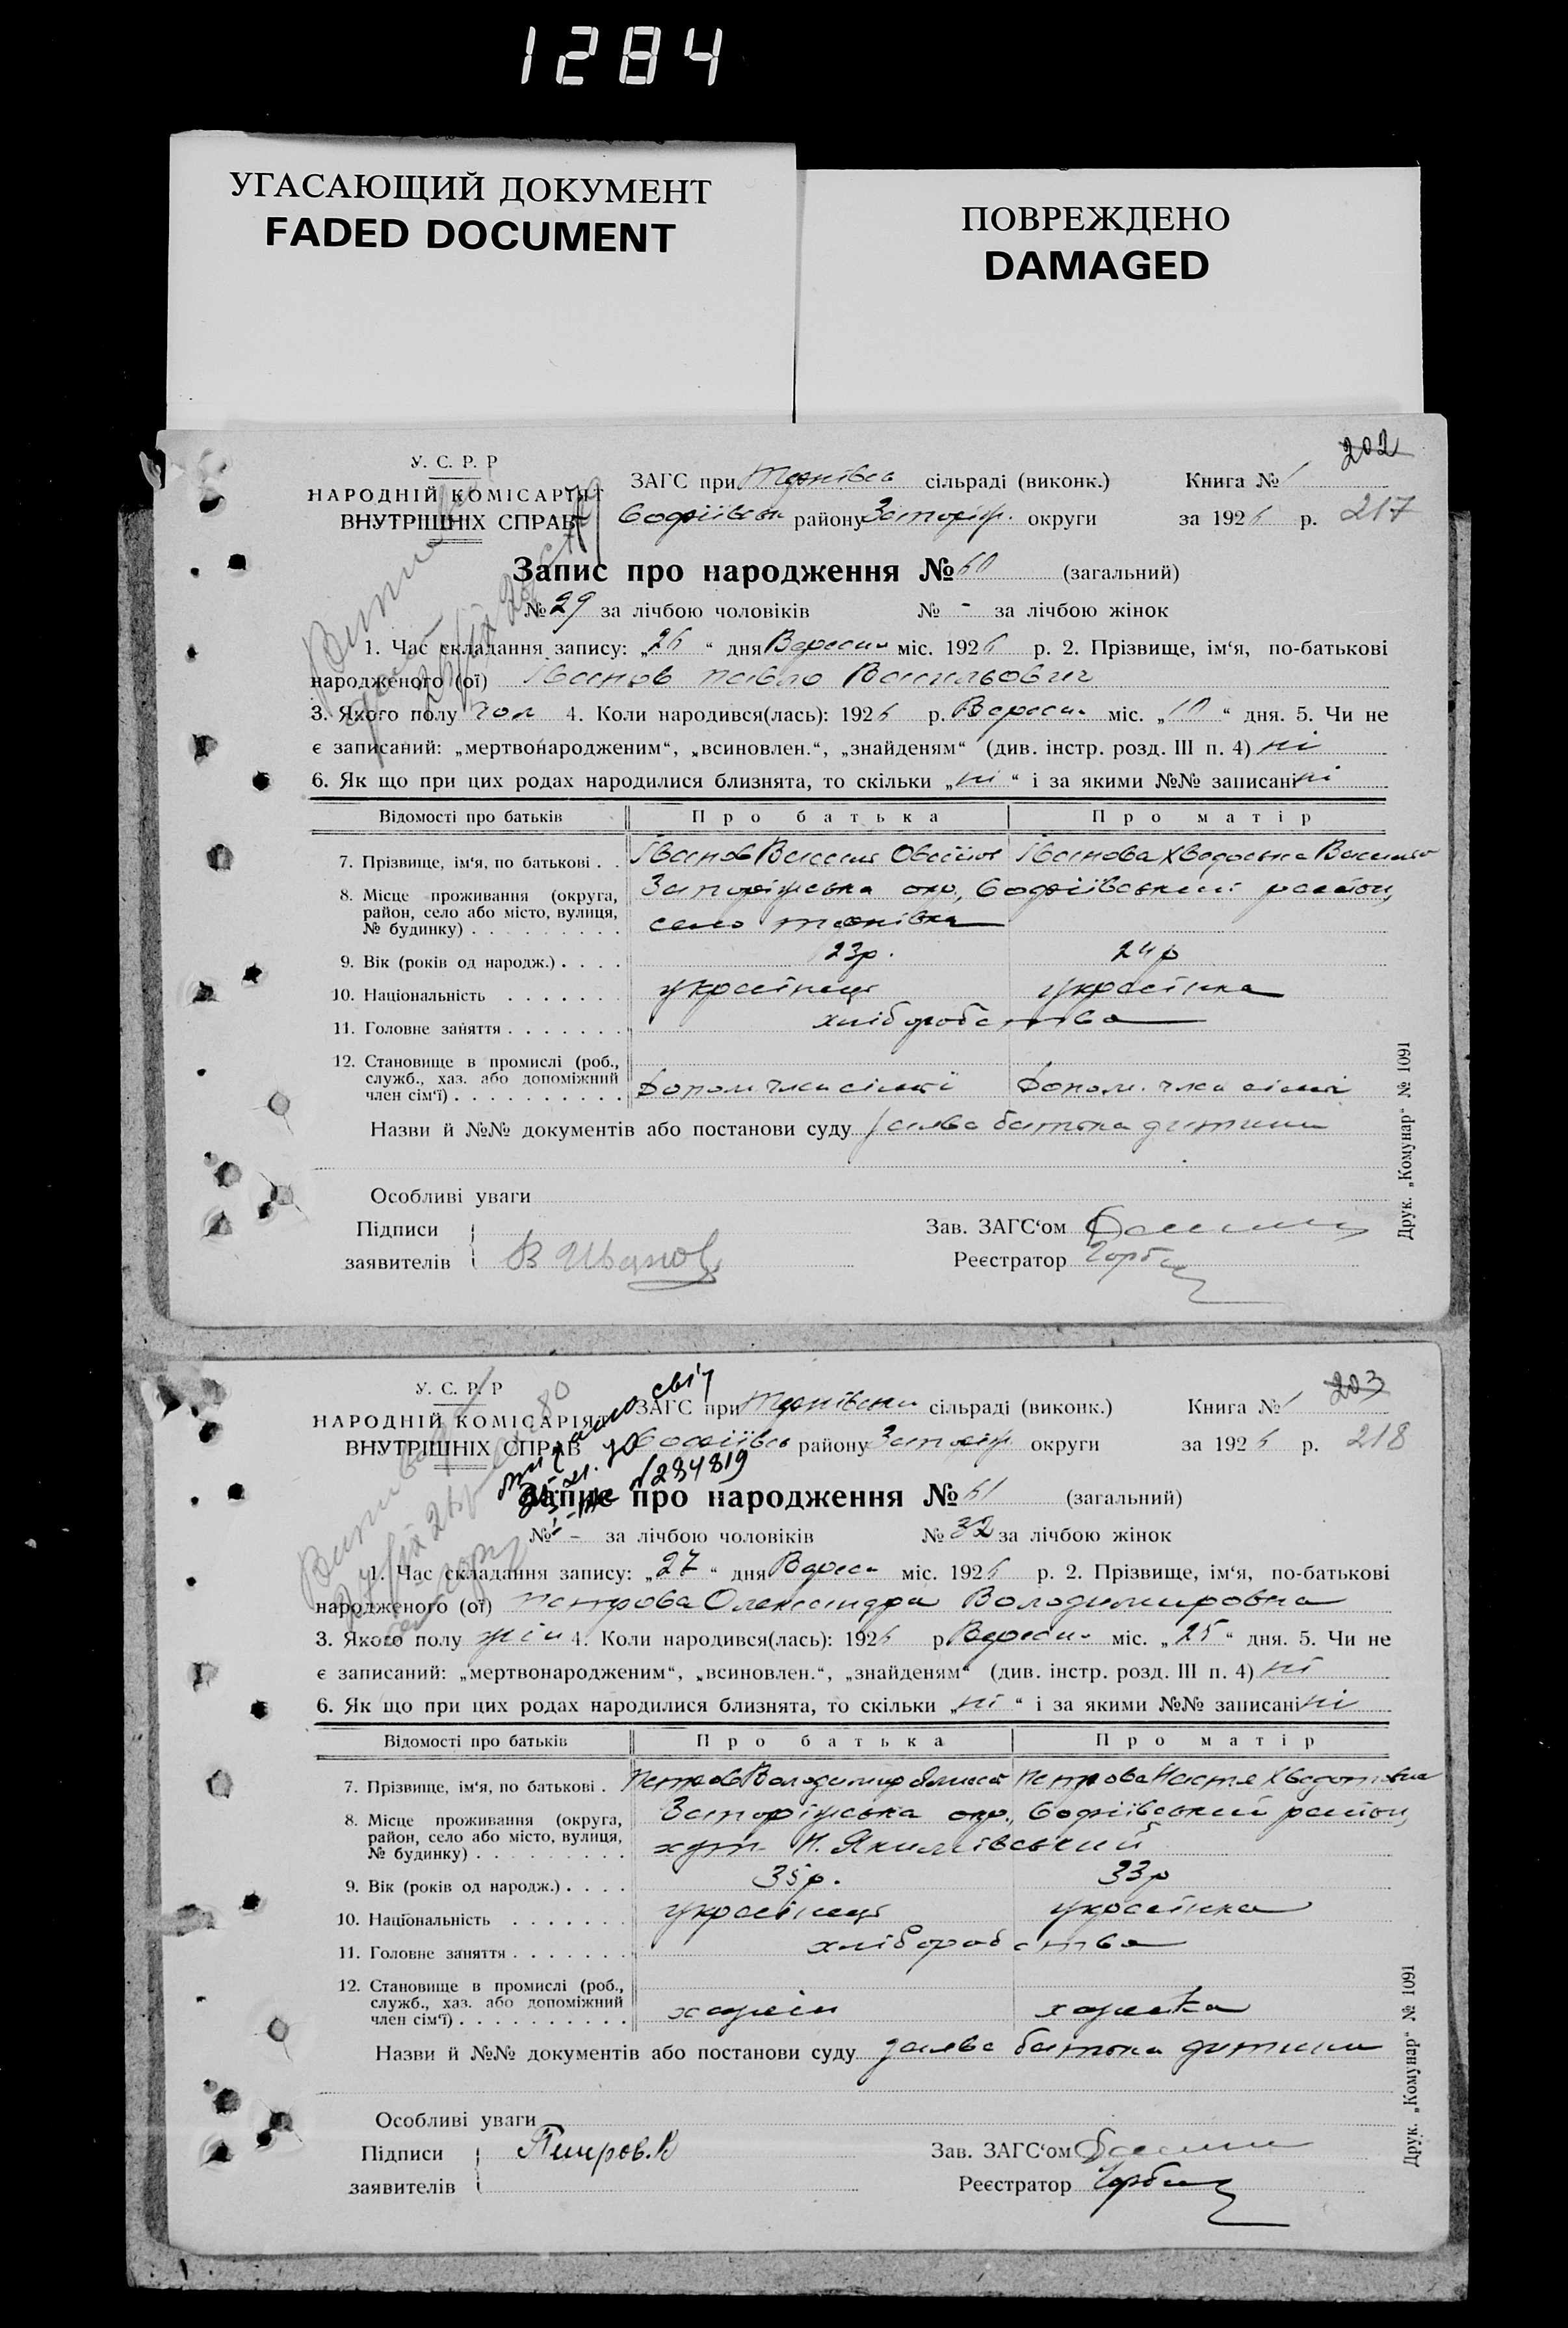 1284
УГАСАЮЩИЙ ДОКУМЕНТ
FADED DOCUMENT
ПОВРЕЖДЕНО
DAMAGED
202
У. С. Р. Р
НАРОДНІЙ КОМІСАРІЯТ
ВНУТРІШНІХ СПРАВ
ЗАГС при сільраді (виконк.) Книга № 1
Софіївськ району Запоріж. округи за 1926 р. 217
Запис про народження № 60 (загальний)
№ 29 за лічбою чоловіків № - за лічбою жінок
1. Час складання запису: „26“ дня Вересня міс. 1926 р. 2. Прізвище, ім‘я, по-батькові
народженого (ої) Іванов Павло Васильович
3. Якого полу чол 4. Коли народився(лась): 1926 р. Вересня міс. „10“ дня. 5. Чи не
є записаний: „мертвонародженим“, „всиновлен.“, „знайденям“ (див. інстр. розд. III п. 4) ні
6. Як що при цих родах народилися близнята, то скільки „ні“ і за якими №№ записані ні
Відомості про батьків Про батька Про матір
7. Прізвище, ім‘я, по батькові . . Іванов Василь Іванова Хведоська Василів
8. Місце проживання (округа, Запоріжська окр., Софіївський район,
район, село або місто, вулиця, село
№ будинку)
9. Вік (років од народж.) . . . . 23р. 24р
10. Національність українець українка
11. Головне заняття хліборобства
12. Становище в промислі (роб.,
служб., хаз. або допоміжний
член сім‘ї) Допом. член сімї Допом. член сімї
Назви й №№ документів або постанови суду заява батька дитини
Особливі уваги
Підписи Зав. ЗАГС‘ом
заявителів В Иванов Реєстратор
Друк. „Комунар“ № 1091
203
У. С. Р. Р
НАРОДНІЙ КОМІСАРІЯТ
ВНУТРІШНІХ СПРАВ
ЗАГС при сільраді (виконк.) Книга № 1
Софіївськ району Запоріж округи за 1926 р. 218
№284819
Запис про народження № 61 (загальний)
№ - за лічбою чоловіків № 32 за лічбою жінок
1. Час складання запису: „27“ дня Вересн міс. 1926 р. 2. Прізвище, ім‘я, по-батькові
народженого (ої) Петрова Олександра Володимировна
3. Якого полу жін 4. Коли народився(лась): 1926 р. Вересня міс. „25“ дня. 5. Чи не
є записаний: „мертвонародженим“, „всиновлен.“, „знайденям“ (див. інстр. розд. III п. 4) ні
6. Як що при цих родах народилися близнята, то скільки „ні“ і за якими №№ записані ні
Відомості про батьків Про батька Про матір
7. Прізвище, ім‘я, по батькові . Петров Володимир Петрова Настя Хведотовна
8. Місце проживання (округа, Запоріжська окр., Софіївський район,
район, село або місто, вулиця, хут. Н. Якимівський
№ будинку)
9. Вік (років од народж.) . . . . 35р. 33р
10. Національність українець українка
11. Головне заняття хліборобства
12. Становище в промислі (роб.,
служб., хаз. або допоміжний
член сім‘ї) хазяїн хазяйка
Назви й №№ документів або постанови суду заява батька дитини
Особливі уваги
Підписи Петров. В Зав. ЗАГС‘ом
заявителів Реєстратор
Друк. „Комунар“ № 1091